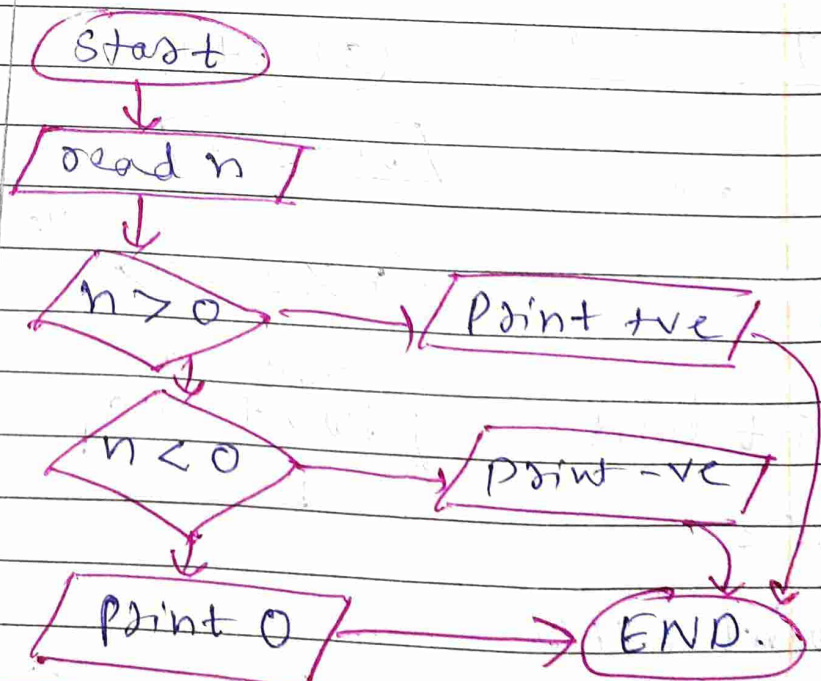 Start
read n
n > 0
Print +ve
n < 0
print -ve
Print 0
END.